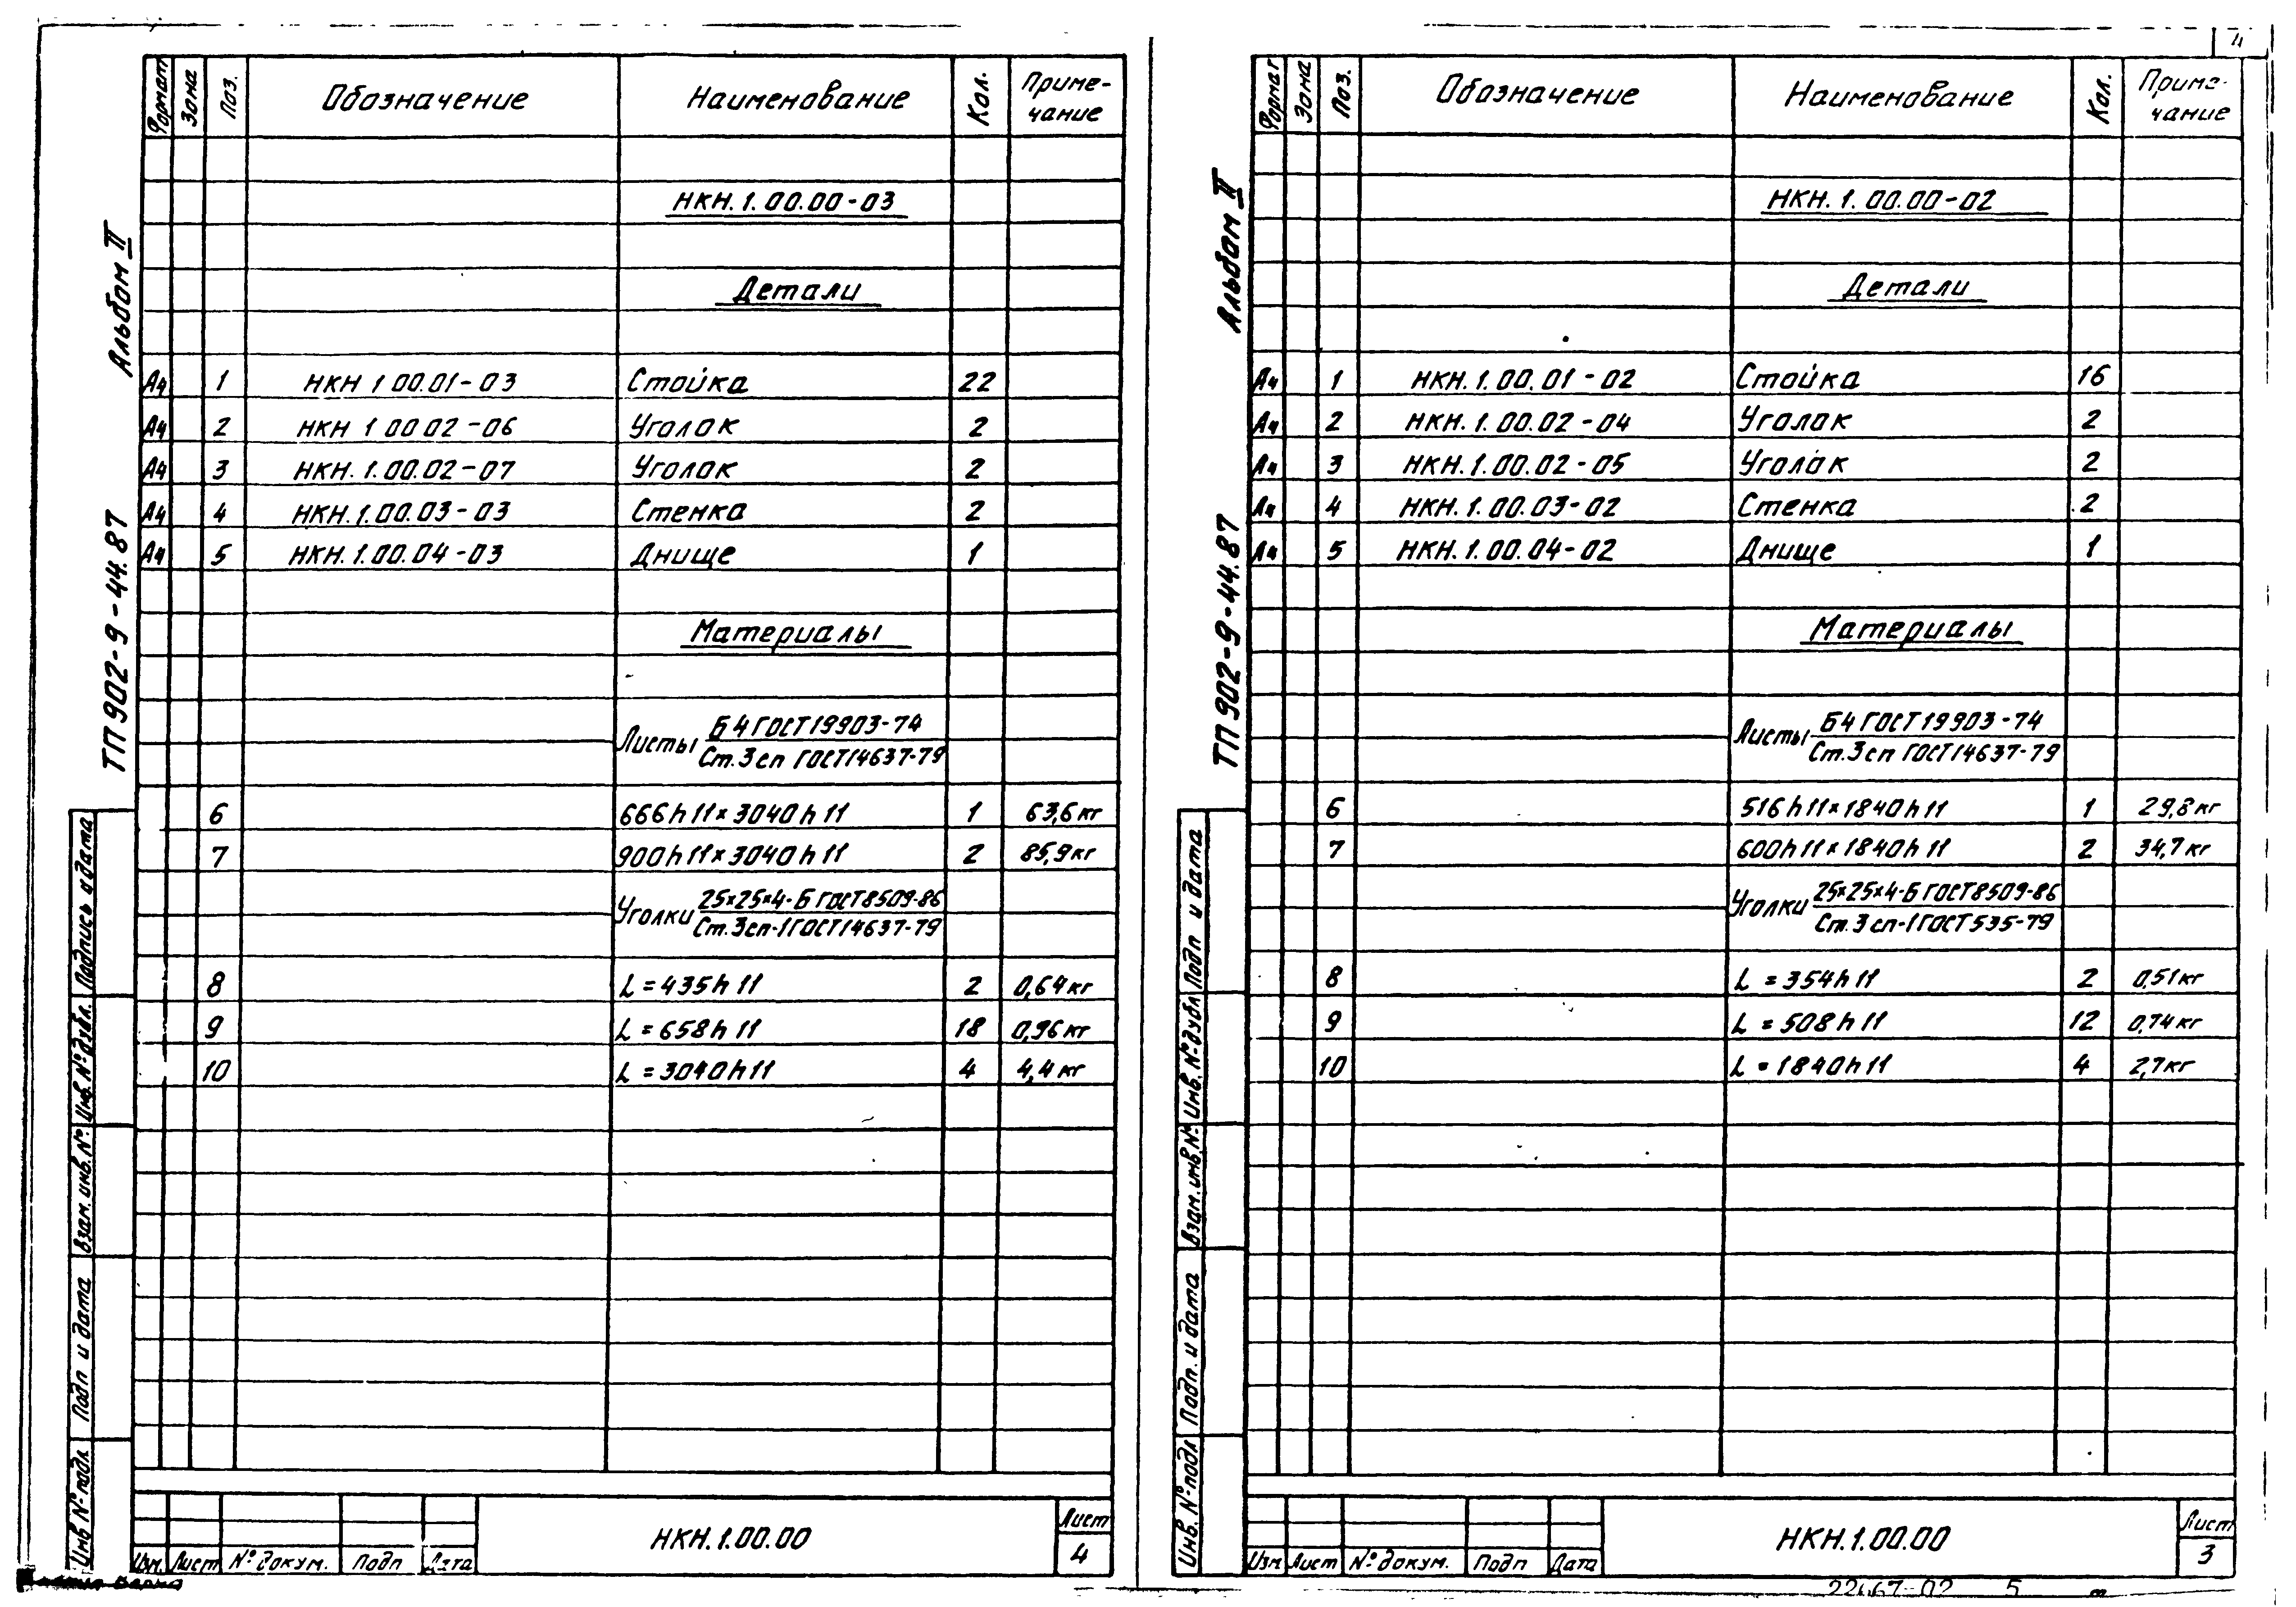 Формат Зона Поз. Обозначение Наименование Кол. Приме-
чание
НКН.1.00.00-03
Детали
А4 1 НКН 1 00.01-03 Стойка 22
А4 2 НКН 1 00 02-06 Уголок 2
А4 3 НКН.1.00.02-07 Уголок 2
А4 4 НКН.1.00.03-03 Стенка 2
А4 5 НКН.1.00.04-03 Днище 1
Материалы
Листы Б4 ГОСТ 19903-74
Ст.3сп ГОСТ 14637-79
6 666h11×3040h11 1 63,6кг
7 900h11×3040h11 2 85,9кг
Уголки 25×25×4-Б ГОСТ 8509-86
Ст.3сп-1 ГОСТ 14637-79
8 L=435h11 2 0,64кг
9 L=658h11 18 0,96кг
10 L=3040h11 4 4,4кг
Альбом II
ТП 902-9-44.87
Подпись и дата
Инв.№дубл.
Взам.инв.№
Подп и дата
Инв №подл
Изм. Лист №докум. Подп Дата
НКН.1.00.00
Лист
4
4
Формат Зона Поз. Обозначение Наименование Кол. Приме-
чание
НКН.1.00.00-02
Детали
А4 1 НКН.1.00.01-02 Стойка 16
А4 2 НКН.1.00.02-04 Уголок 2
А4 3 НКН.1.00.02-05 Уголок 2
А4 4 НКН.1.00.03-02 Стенка 2
А4 5 НКН.1.00.04-02 Днище 1
Материалы
Листы Б4 ГОСТ 19903-74
Ст.3сп ГОСТ 14637-79
6 516h11×1840h11 1 29,8кг
7 600h11×1840h11 2 34,7кг
Уголки 25×25×4-Б ГОСТ 8509-86
Ст.3сп-1 ГОСТ 535-79
8 L=354h11 2 0,51кг
9 L=508h11 12 0,74кг
10 L=1840h11 4 2,7кг
Альбом II
ТП 902-9-44.87
Подп и дата
Инв.№дубл
Взам.инв.№
Подп. и дата
Инв.№подл
Изм Лист №докум. Подп Дата
НКН.1.00.00
Лист
3
22667-02 5